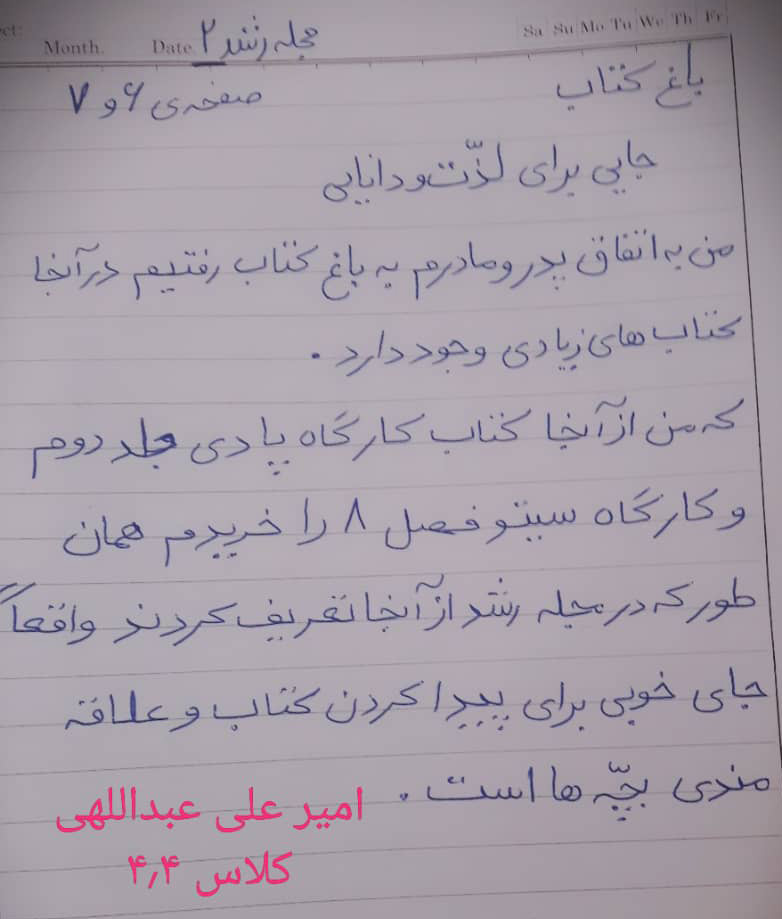 Sa Su Mo Tu We Th Fr
Month. Date. مجله رشد ۲
باغ کتاب
صفحه‌ی ۶ و ۷
جایی برای لذّت و دانایی
من به اتفاق پدر و مادرم به باغ کتاب رفتیم در آنجا
کتاب های زیادی وجود دارد .
که من از آنجا کتاب کارگاه پادی جلد دوم
و کارگاه سیتو فصل ۸ را خریدم همان
طور که در مجله رشد از آنجا تعریف کردند واقعاً
جای خوبی برای پیدا کردن کتاب و علاقه
مندی بچّه ها است .
امیر علی عبداللهی
کلاس ۴٫۴